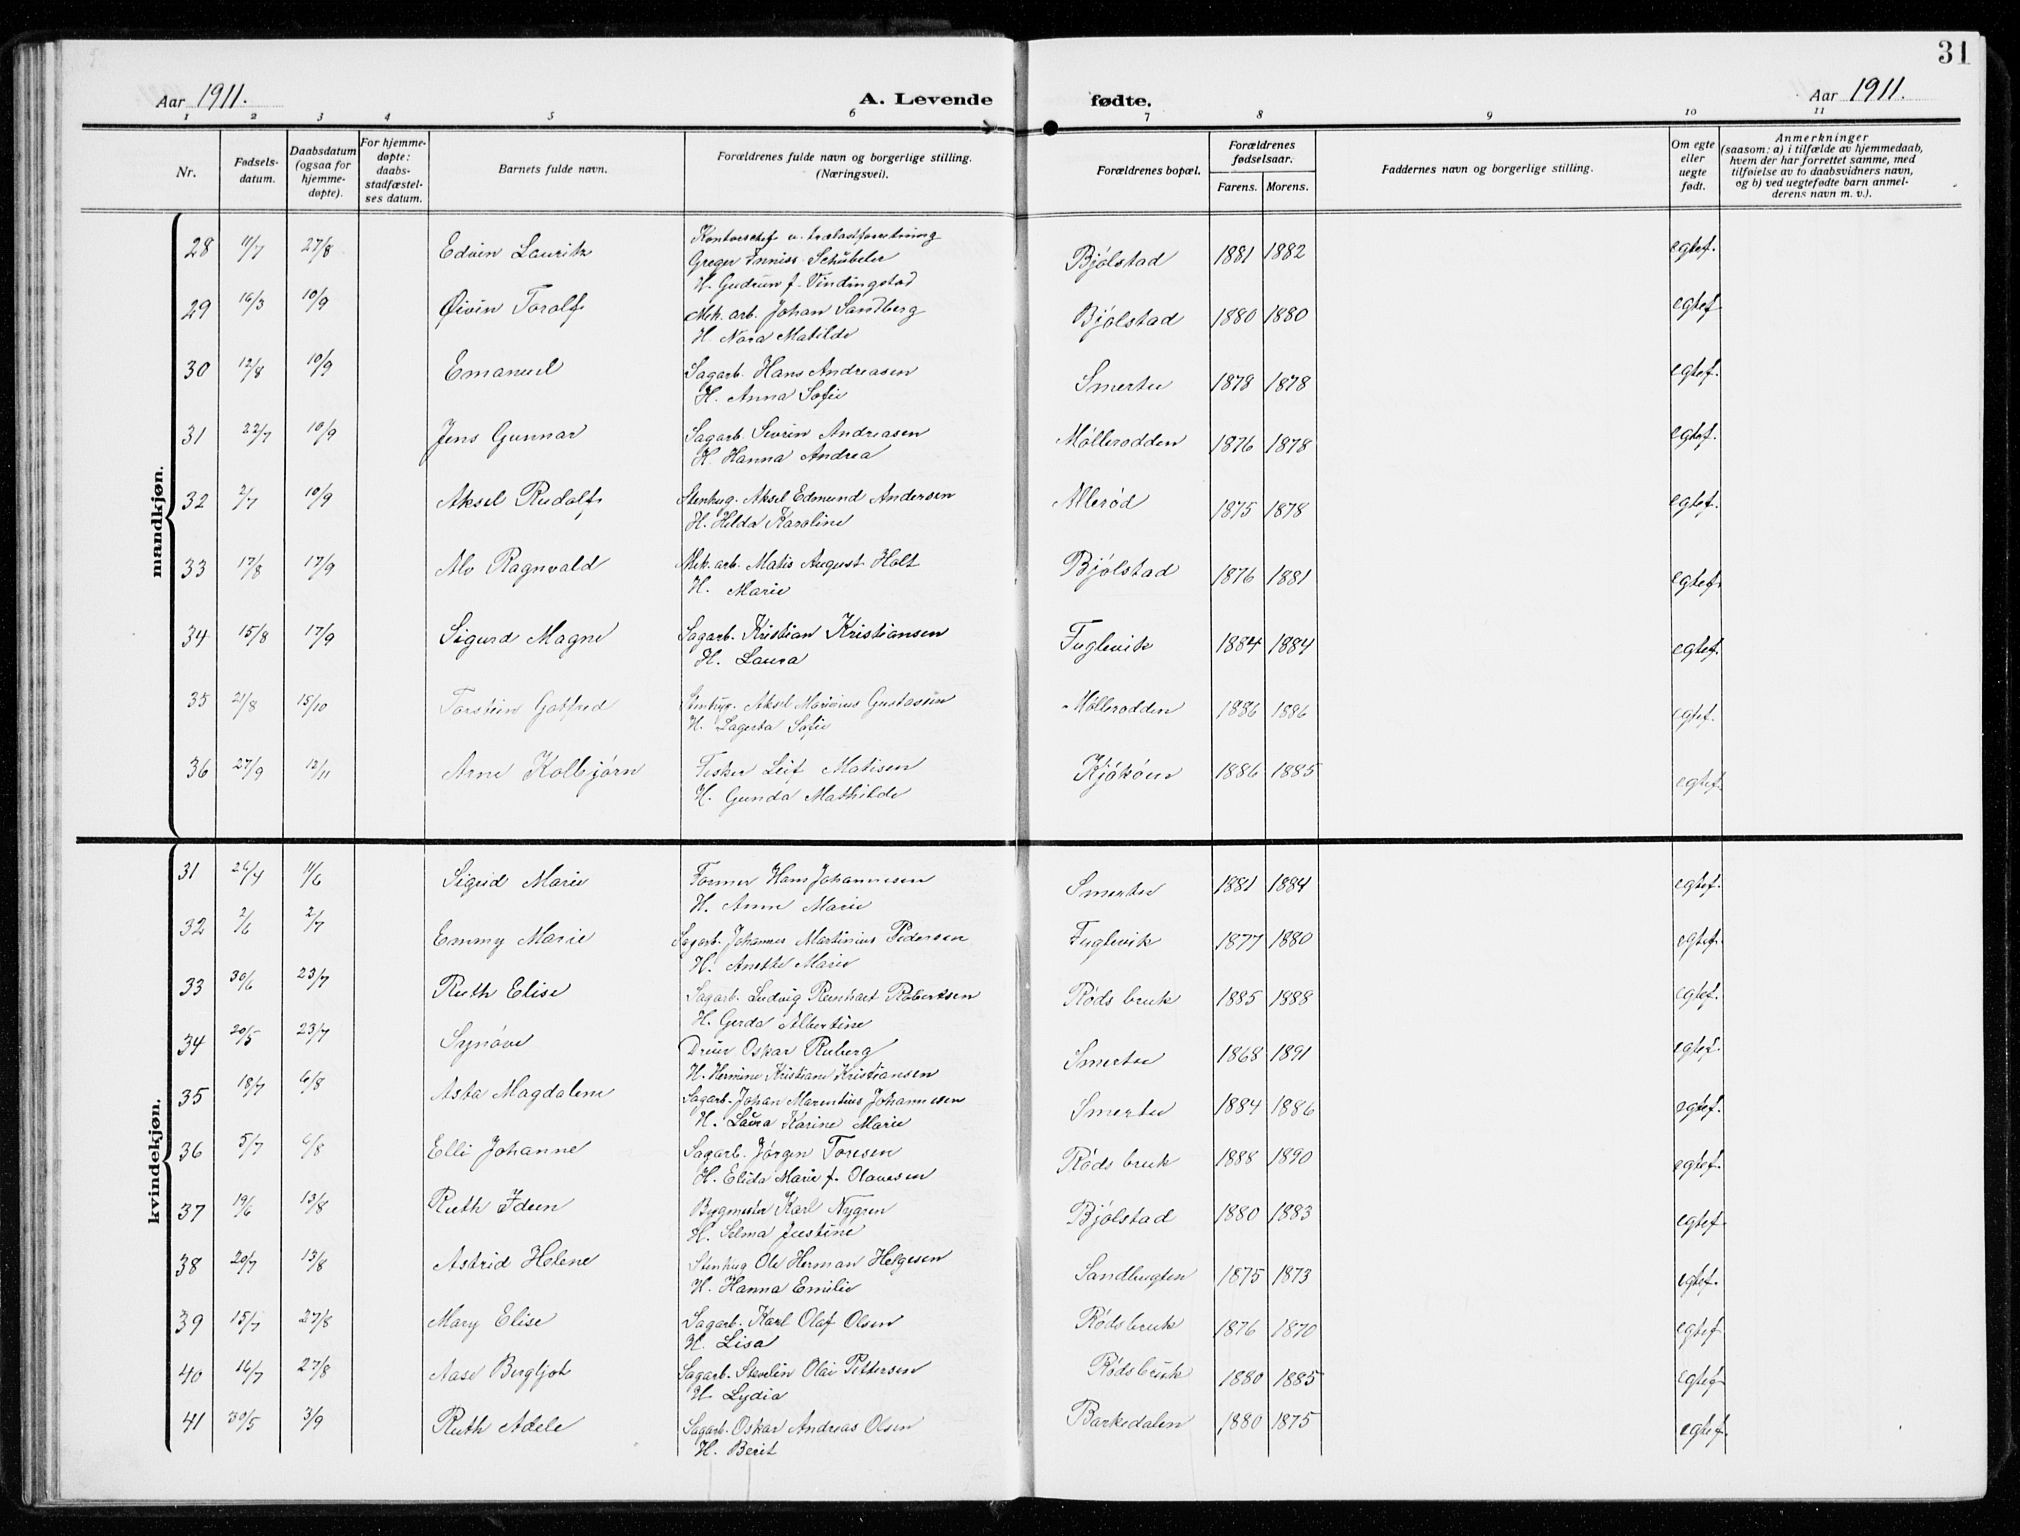 31
Aar 1911.
A. Levende fødte.
Aar 1911.
1 2 3 4 5 6 7 8 9 10 11
Nr.
Fødsels-
datum.
Daabsdatum
(ogsaa for
hjemme-
døpte).
For hjemme-
døpte:
daabs-
stadfæstel-
ses datum.
Barnets fulde navn.
Forældrenes fulde navn og borgerlige stilling.
(Næringsvei).
Forældrenes bopæl.
Forældrenes
fødselsaar.
Farens. Morens.
Faddernes navn og borgerlige stilling.
Om egte
eller
uegte
født.
Anmerkninger
(saasom: a) i tilfælde av hjemmedaab,
hvem der har forrettet samme, med
tilføielse av to daabsvidners navn,
og b) ved uegtefødte barn anmel-
derens navn m. v.).
mandkjøn.
28 11/7 27/8 Edvin Lauritz Kontorchef v. trælastforretning
Greger Schübeler Bjølstad 1881 1882 egtef.
H. Gudrun f. Vindingstad
29 16/3 10/9 Øivin Toralf Mek. arb. Johan Sandberg Bjølstad 1880 1880 egtef
H. Nora Matilde
30 12/8 10/9 Emanuel Sagarb. Hans Andreasen Smertu 1878 1878 egtef.
H. Anna Sofie
31 22/7 10/9 Jens Gunnar Sagarb. Sevrin Andreasen Møllerodden 1876 1878 egtef.
H. Hanna Andrea
32 2/7 10/9 Aksel Rudolf Stenhug. Aksel Edmund Andersen Allerød 1875 1878 egtef.
H. Hilda Karoline
33 17/8 17/9 Alv Ragnvald Mek. arb. Matis August Holt Bjølstad 1876 1881 egtef.
H. Marie
34 15/8 17/9 Sigurd Magne Sagarb. Kristian Kristiansen Fuglevik 1884 1884 egtef.
H. Laura
35 21/8 15/10 Torstein Gotfred Stenhug. Aksel Marius Gustasen Møllerodden 1886 1886 egtef.
H. Lagerta Sofie
36 27/9 12/11 Arne Kolbjørn Fisker Leif Matisen Kjøkøen 1886 1885 egtef.
H. Gunda Mathilde
kvindekjøn.
31 26/4 11/6 Sigrid Marie Former Hans Johannesen Smertu 1881 1884 egtef.
H. Anne Marie
32 2/6 2/7 Emmy Marie Sagarb. Johannes Martinius Pedersen Fuglevik 1877 1880 egtef.
H. Anette Marie
33 30/6 23/7 Ruth Elise Sagarb. Ludvig Reinhart Robertsen Røds bruk 1885 1888 egtef.
H. Gerda Albertine
34 20/5 23/7 Synøve Driver Oskar Ruberg Smertu 1868 1891 egtef.
H. Hermine Kristiane Kristiansen
35 18/7 6/8 Asta Magdalene Sagarb. Johan Marentius Johannesen Smertu 1884 1886 egtef.
H. Laura Karine Marie
36 5/7 6/8 Elli Johanne Sagarb. Jørgen Toresen Røds bruk 1888 1890 egtef.
H. Elida Marie f. Olavesen
37 19/6 13/8 Ruth Idun Bygmester Karl Nygren Bjølstad 1880 1883 egtef
H. Selma Justine
38 20/7 13/8 Astrid Helene Stenhug Ole Herman Helgesen Sandbugten 1875 1873 egtef.
H. Hanna Emilie
39 15/7 27/8 Mary Elise Sagarb. Karl Olaf Olsen Røds bruk 1876 1870 egtef
H. Lisa
40 16/7 27/8 Aase Bergljot Sagarb. Olai Pettersen Røds bruk 1880 1885 egtef
H. Lydia
41 30/5 3/9 Ruth Adele Sagarb. Oskar Andreas Olsen Barkedalen 1880 1875 egtef.
H. Berit